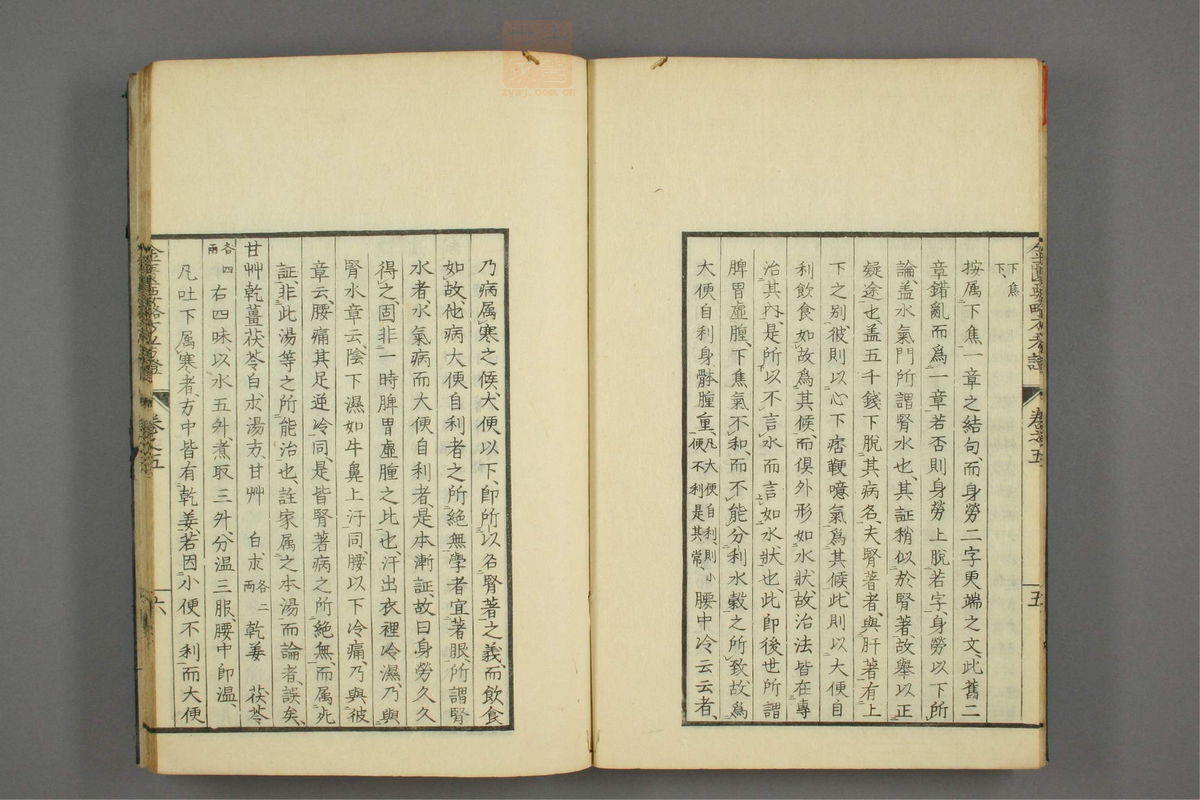 下焦
下、
按属下焦一章之結句、而身勞二字更端之文、此舊二
章錯亂而爲一章若否則身勞上脫若字、身勞以下所
論、盖水氣門所謂腎水也、其証稍似於腎著、故舉以正
疑途也盖五千錢下脫其病名、夫腎著者、與肝著有上
下之別、彼則以心下痞鞕噫氣爲其候、此則以大便自
利飲食如故爲其候、而俱外形如水狀、故治法皆在專
治其內、是所以不言水而言如水狀也、此即後世所謂
脾胃虛腫、下焦氣不和、而不能分利水穀之所致、故爲
大便自利身體腫重、凡大便自利、則小便不利是其常、腰中冷云云者、
卷之五
五
乃病属寒之候、大便以下、即所以名腎著之義、而飲食
如故、他病大便自利者之所絕無、學者宜著眼、所謂腎
水者、水氣病而大便自利者、是本漸証、故曰身勞久久
得之、固非一時脾胃虛腫之比也、汗出衣裡冷濕、乃與
腎水章云、陰下濕如牛鼻上汗同、腰以下冷痛、乃與彼
章云、腰痛其足逆冷同、是皆腎著病之所絕無、而属
証、非此湯等之所能治也、註家属之本湯而論者、誤矣、
甘艸乾薑茯苓白朮湯方、甘艸 白朮各二兩 乾姜 茯苓
各四兩 右四味、以水五升、煮取三升、分溫三服、腰中即溫、
凡吐下属寒者、方中皆有乾姜、若因小便不利而大便
卷之五
六
zysj.com.cn